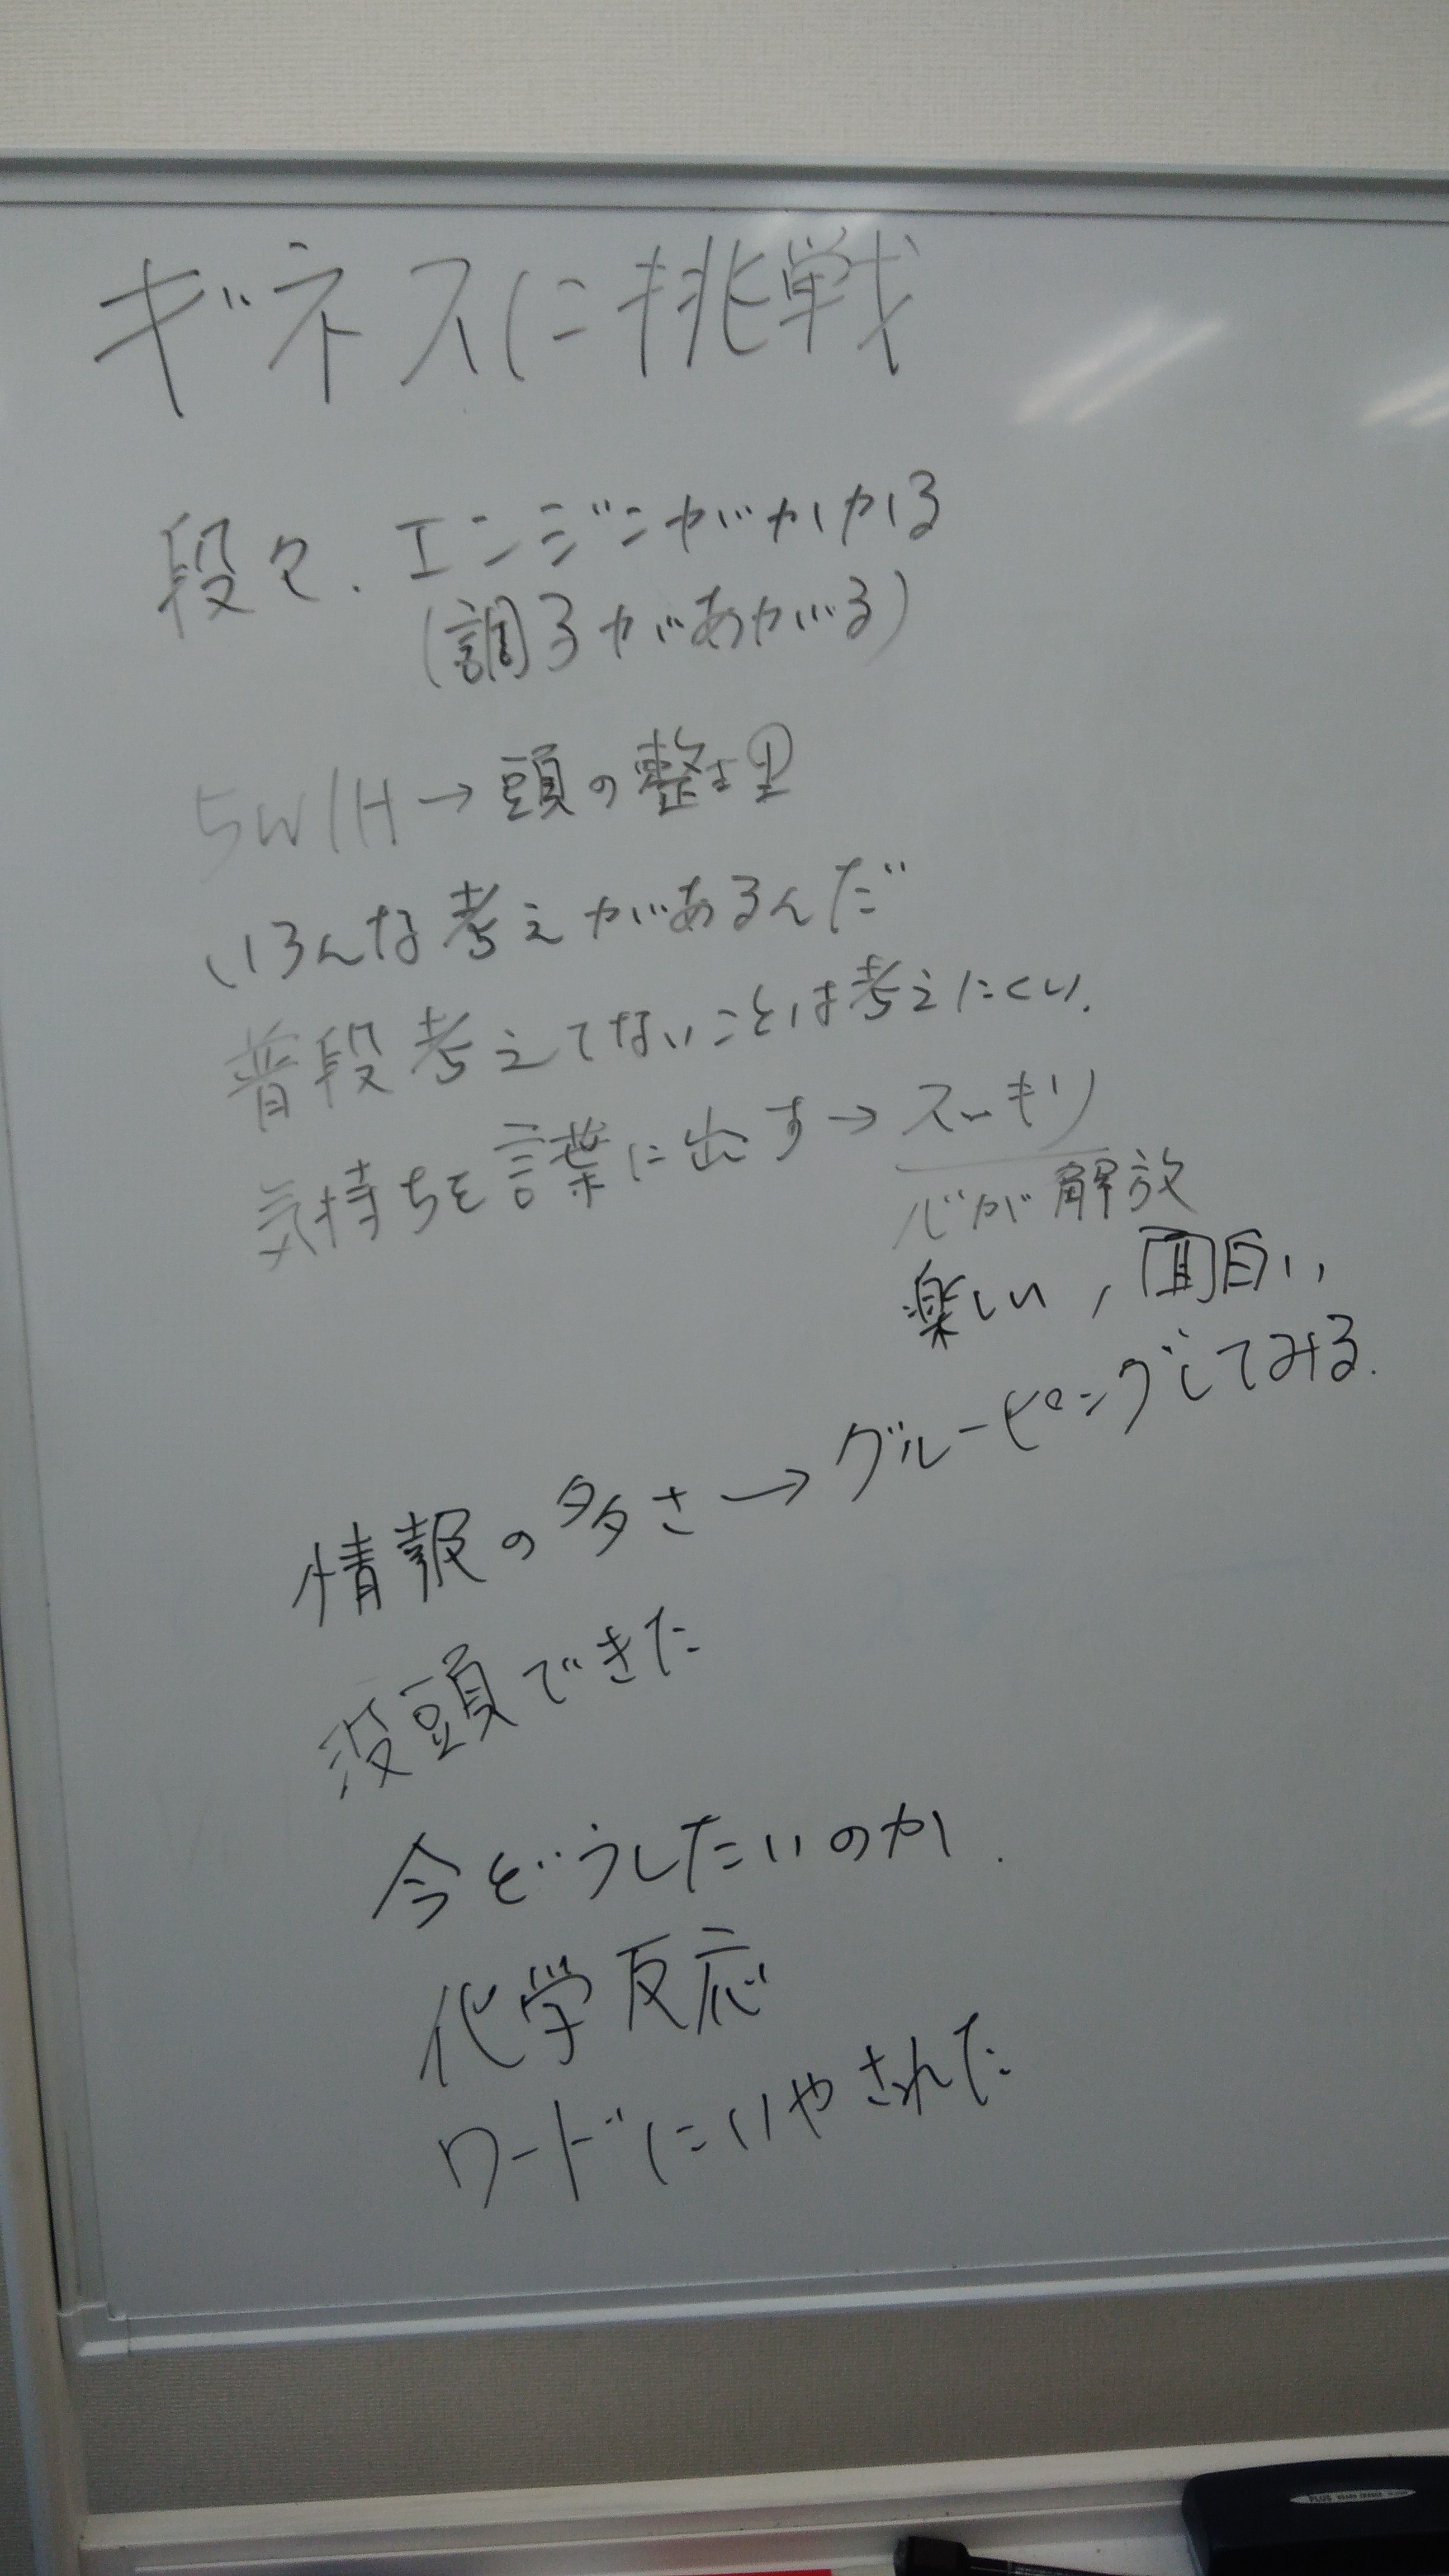 ギネスに挑戦
段々、エンジンがかかる
(調子があがる)
5W1H→頭の整理
いろんな考えがあるんだ
普段考えてないことは考えにくい.
気持ちを言葉に出す→スッキリ
心が解放
楽しい,面白い
情報の多さ→グルーピングしてみる.
没頭できた
今どうしたいのか.
化学反応
ワードにいやされた
PLUS